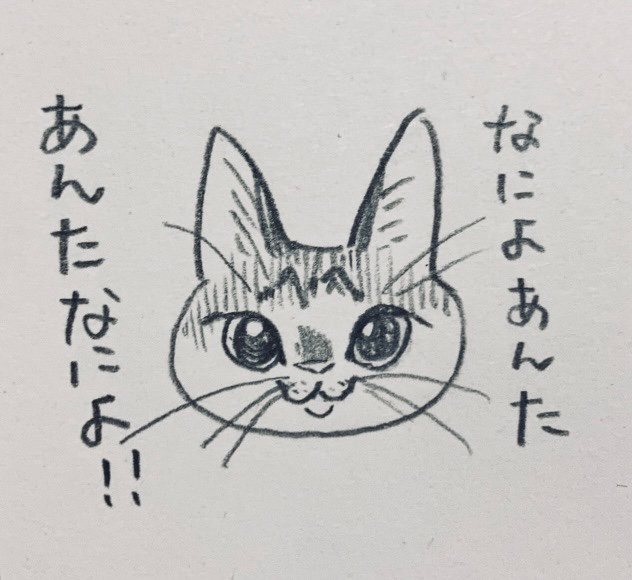 なによあんた
あんたなによ!!